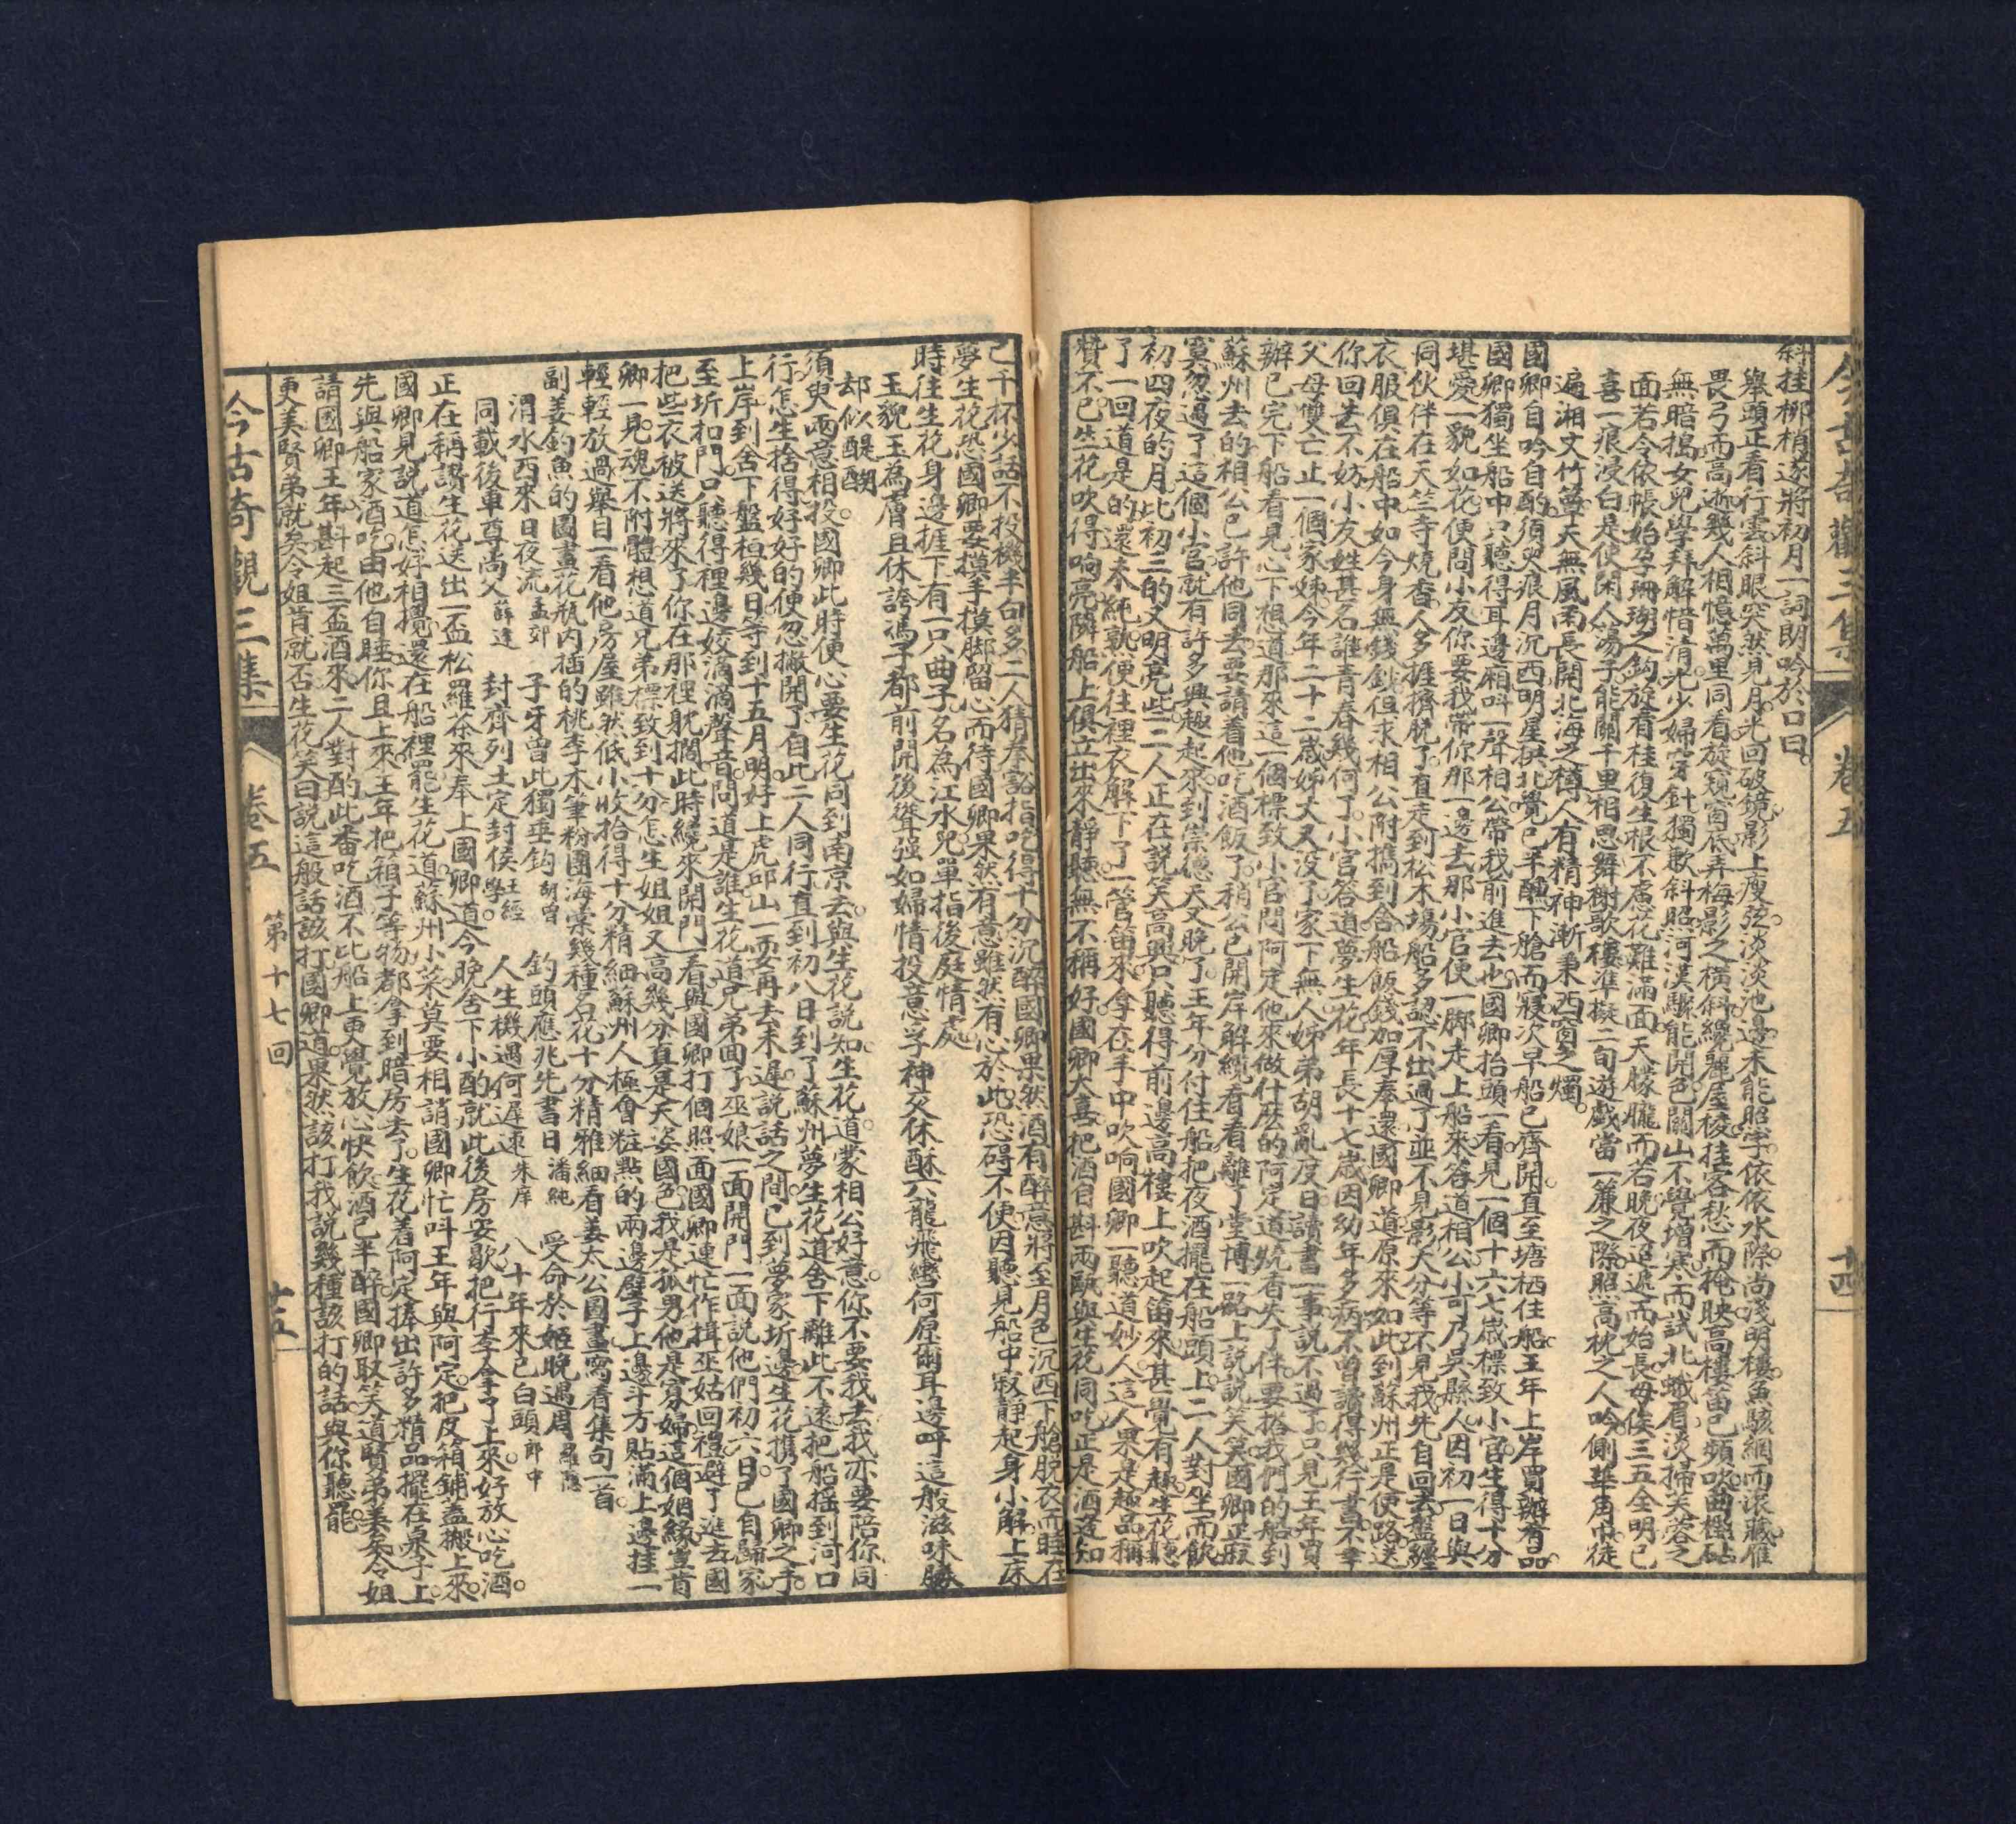 今古奇觀三集
卷五
十四
斜挂栁梢遂將初月一詞朗吟於口曰
舉頭正看行雲斜眼突然見月光回破鏡影上瘦弦淡淡池邊未能照字依依水際尚淺明樓魚駭網而深藏雁
畏弓而高逝幾人相憶萬里同看旋窺窗底弄梅影之橫斜纔麗屋稜挂客愁而掩映高樓笛已頻吹曲檻砧
無暗搗女兒學拜解惜清光少婦穿針獨歎斜照河漢驟能開色關山不覺增寒而試北蛾眉淡掃芙蓉之
面若令依帳始孕珊瑚之鈎放看桂復生根不慮花難滿面天朦朧而若晚夜迢遞而始長毋俟三五全明已
喜一痕浸白是使閑人蕩子能關千里相思舞榭歌樓準擬二旬遊戲當一簾之際照高枕之人吟側華角巾徒
遍湘文竹簟天無風雨長開北海之樽人有精神漸秉西窗之燭
國卿自吟自酌須臾痕月沉西明星拱北覺已半醺下艙而寢次早船已齊開直至塘栖住船王年上岸買辦肴品
國卿獨坐船中只聽得耳邊廂呌一聲相公帶我前進去也國卿抬頭一看見一個十六七歲標致小官生得十分
堪愛一貌如花便問小友你要我帶你那一邊去那小官便一脚走上船來答道相公小可乃吳縣人因初一日與
同伙伴在天竺寺燒香人多捱擠脫了直走到松木場船多認不出過了並不見影大分等不見我先自回去盤纏
衣服俱在船中如今身無錢鈔但求相公附攜到舍船飯錢加厚奉還國卿道原來如此到蘇州正是便路送
你回去不妨小友姓甚名誰青春幾何了小官答道夢生花年長十七歲因幼年多病不曾讀得幾行書不幸
父母雙亡止一個家姊今年二十二歲姊丈又沒了家下無人姊弟胡亂度日讀書一事說不過了只見王年買
辦已完下船看見心下想道那來這一個標致小官問阿定他來做什麽的阿定道燒香失了伴要搭我們的船到
蘇州去的相公已許他同去要請着他吃酒飯了稍公已開岸解纜看看離了堂博一路上說說笑笑國卿正寂
寞忽過了這個小官就有許多興趣起來到崇德天又晚了王年分付住船把夜酒擺在船頭上二人對坐而飲
初四夜的月比初三的又明亮些二人正在說笑高興只聽得前邊高樓上吹起笛來甚覺有趣生花聽
了一回道是的還未純熟便往裡衣解下了一管笛來拿在手中吹响國卿一聽道妙人這人果是趣品稱
贊不已生花吹得响亮隣船上俱立出來靜聽無不稱好國卿大喜把酒自斟兩甌與生花同吃正是酒逢知
己千杯少話不投機半句多二人猜拳豁指吃得十分沉醉國卿果然酒有醉意將至月色沉西下艙脫衣而睡在
夢生花恐國卿要摸手摸脚留心而待國卿果然有意雖然有心於此恐碍不便因聽見船中寂靜起身小解上床
時往生花身邊捱下有一只曲子名為江水兒單指後庭情處
玉貌玉為膚且休誇馮子都前開後聳强如婦情投意孚神交休酥六龍飛轡何原爾耳邊呼這般滋味勝
却似醍醐
須臾兩意相投國卿此時便心要生花同到南京去與生花說知生花道蒙相公好意你不要我去我亦要陪你同
行怎生捨得好好的便忽撇開了自此二人同行直到初八日到了蘇州夢生花道舍下離此不遠把船摇到河口
上岸到舍下盤桓幾日等到十五月明好上虎邱山一耍再去未遲說話之間已到夢家圻邊生花攜了國卿之手
至圻扣門只聽得裡邊姣滴滴聲音問道是誰生花道兄弟囬了巫娘一面開門一面說他們初六日已自歸家
把些衣被送將來了你在那裡躭擱此時纔來開門一看與國卿打個照面國卿連忙作揖巫姑回禮避了進去國
卿一見魂不附體想道兄弟標致到十分怎生姐姐又高幾分真是天姿國色我是孤男他是寡婦這個姻緣豈肯
輕輕放過舉目一看他房屋雖然低小收拾得十分精細蘇州人極會粧點的兩邊壁子上邊斗方貼滿上邊挂一
副姜釣魚的圖畫花瓶內插的桃李木筆粉團海棠幾種名花十分精雅細看姜太公圖畫寫着集句一首
渭水西來日夜流 孟郊 子牙曾此獨垂鈎 胡曾 釣頭應兆先書日 潘純 受命於姬晚遇周 羅隱
同載後車尊尚父 薛逢 封齊列土定封侯 王經學 人生機遇何遲速 朱庠 八十年來已白頭 郎中
正在稱讚生花送出一盃松羅茶來奉上國卿道今晚舍下小酌就此後房安歇把行李拿了上來好放心吃酒
國卿見說道怎好相攪還在船裡罷生花道蘇州小菜莫要相誚國卿忙呌王年與阿定把皮箱鋪蓋搬上來
先與船家酒吃由他自睡你且上來王年把箱子等物都拿到暗房去了生花着阿定捧出許多精品擺在桌子上
請國卿王年斟起三盃酒來二人對酌此番吃酒不比船上更覺放心快飲酒已半醉國卿取笑道賢弟美矣令姐
更美賢弟就矣令姐肯就否生花笑曰說這般話該打國卿道果然該打我說幾種該打的話與你聽罷
今古奇觀三集
卷五
第十七回
十五